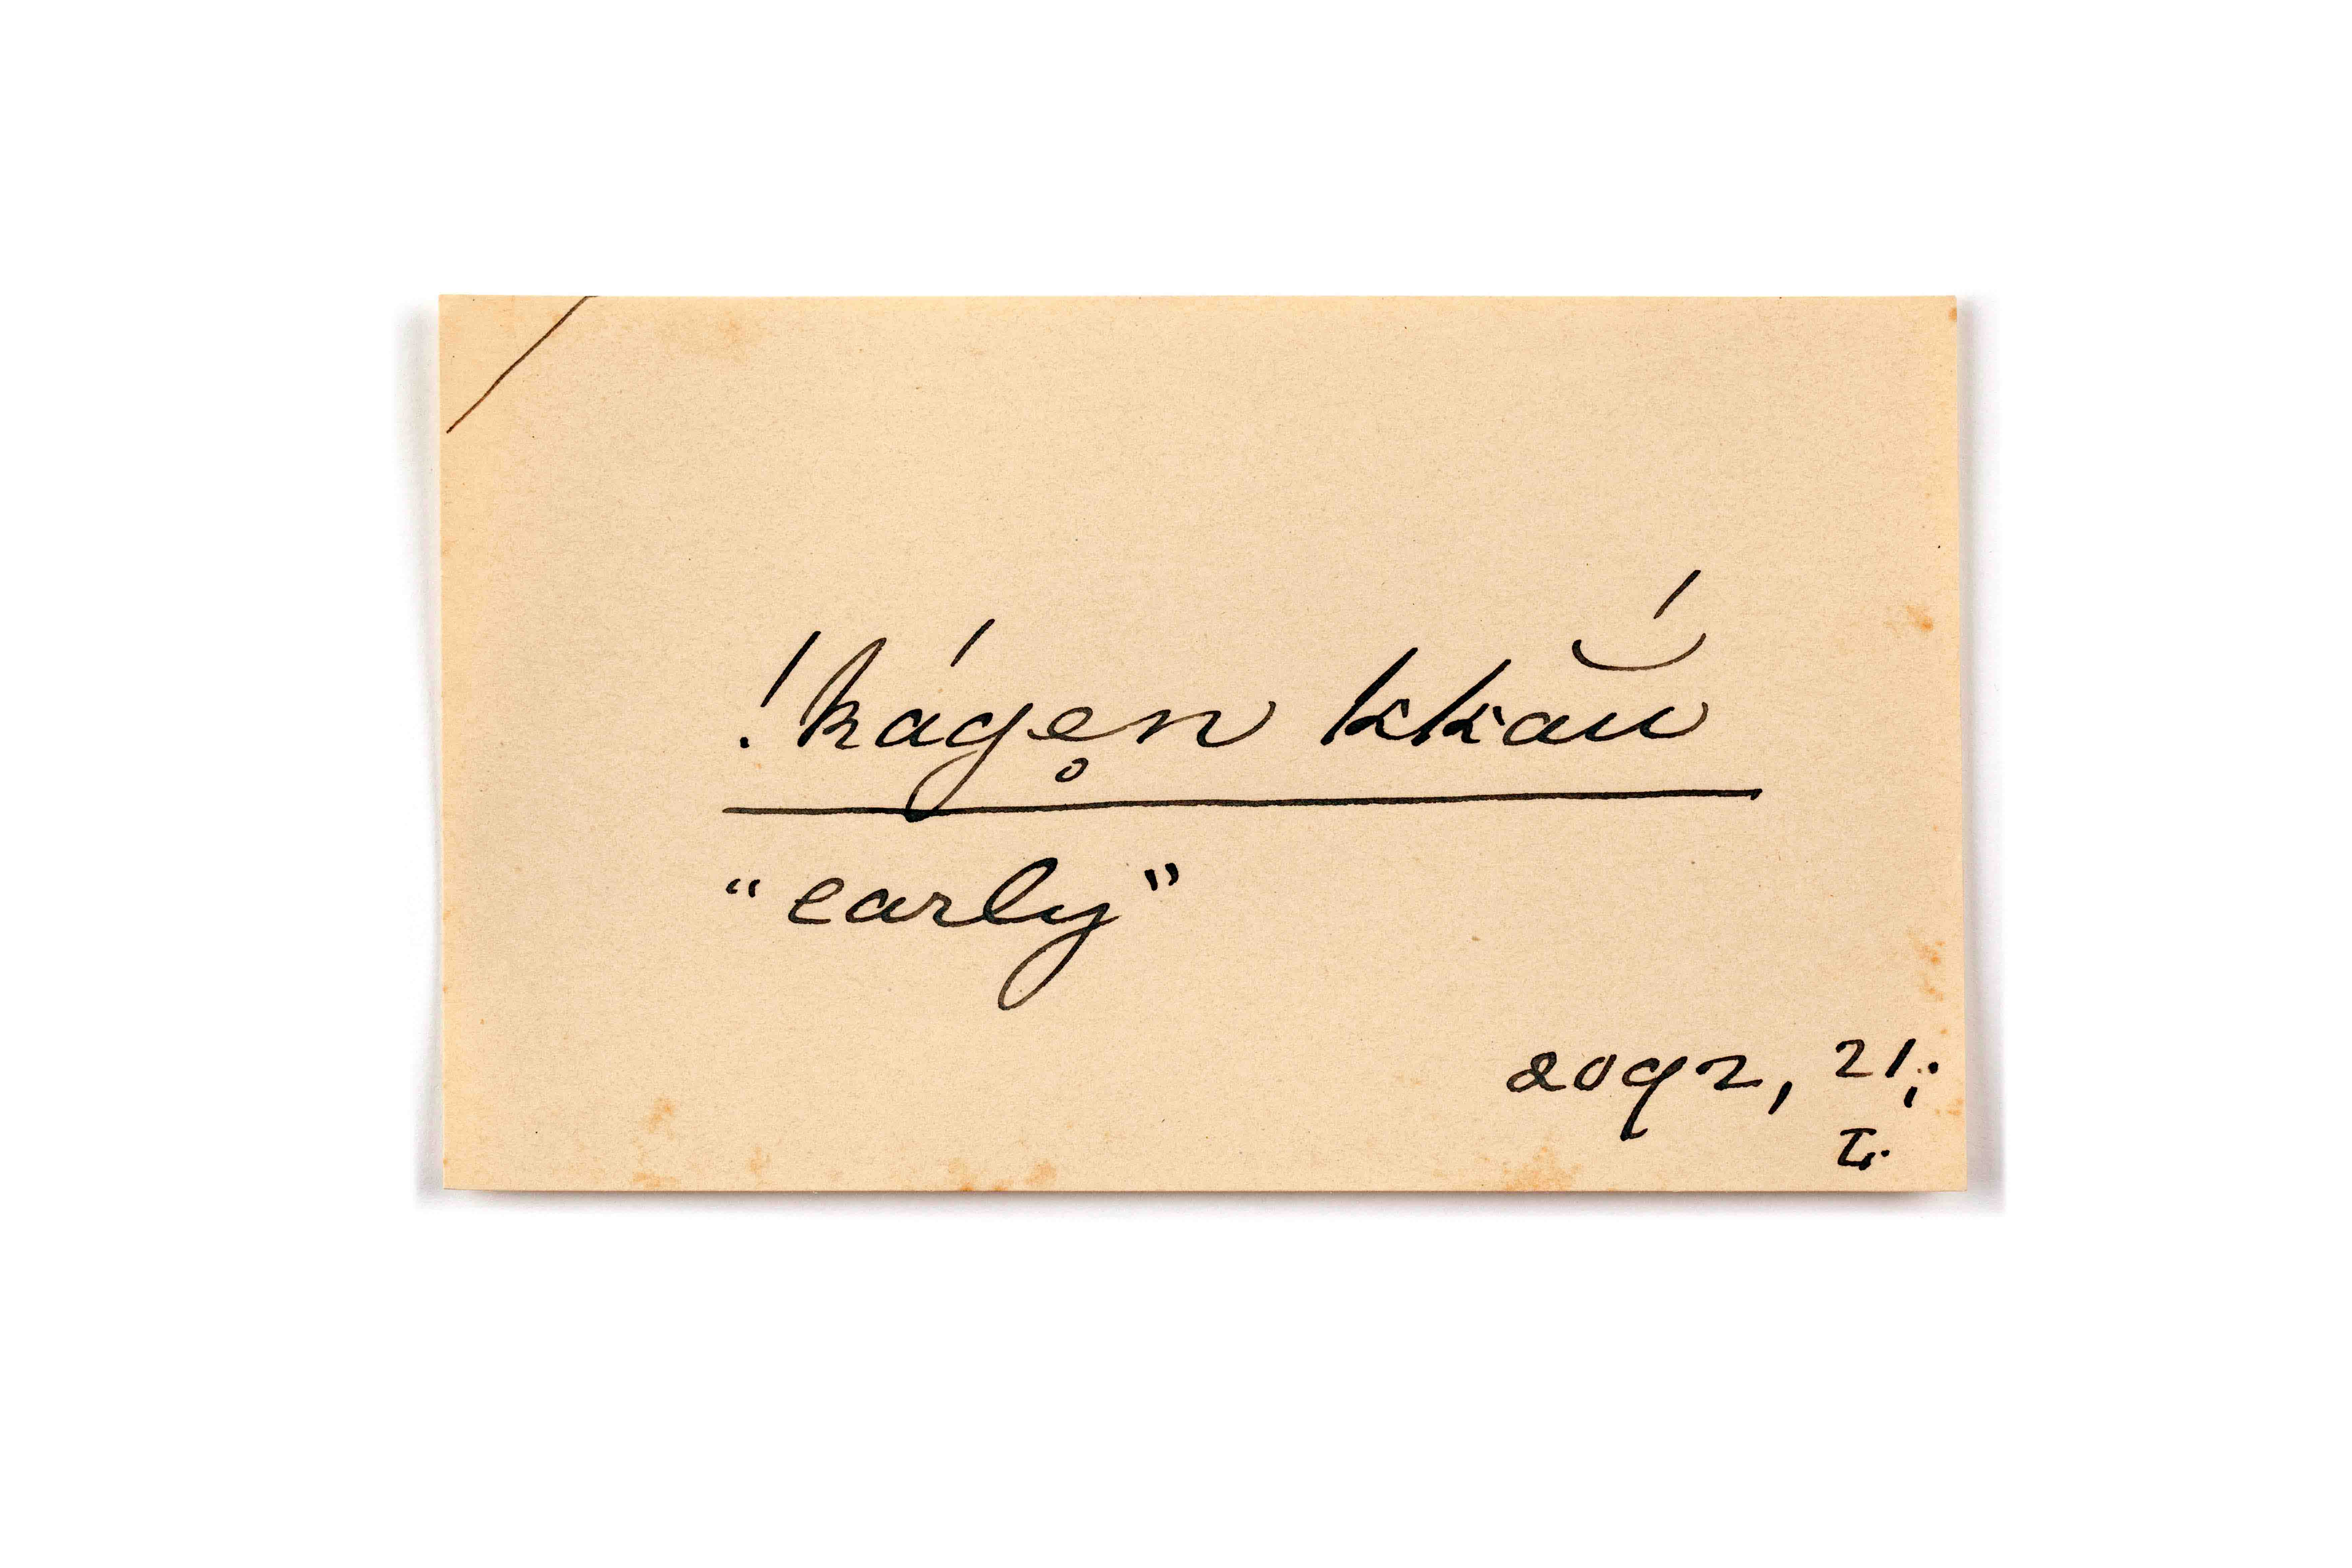 !káge̥n kkăú̯
"early"
2092, 21;
L.